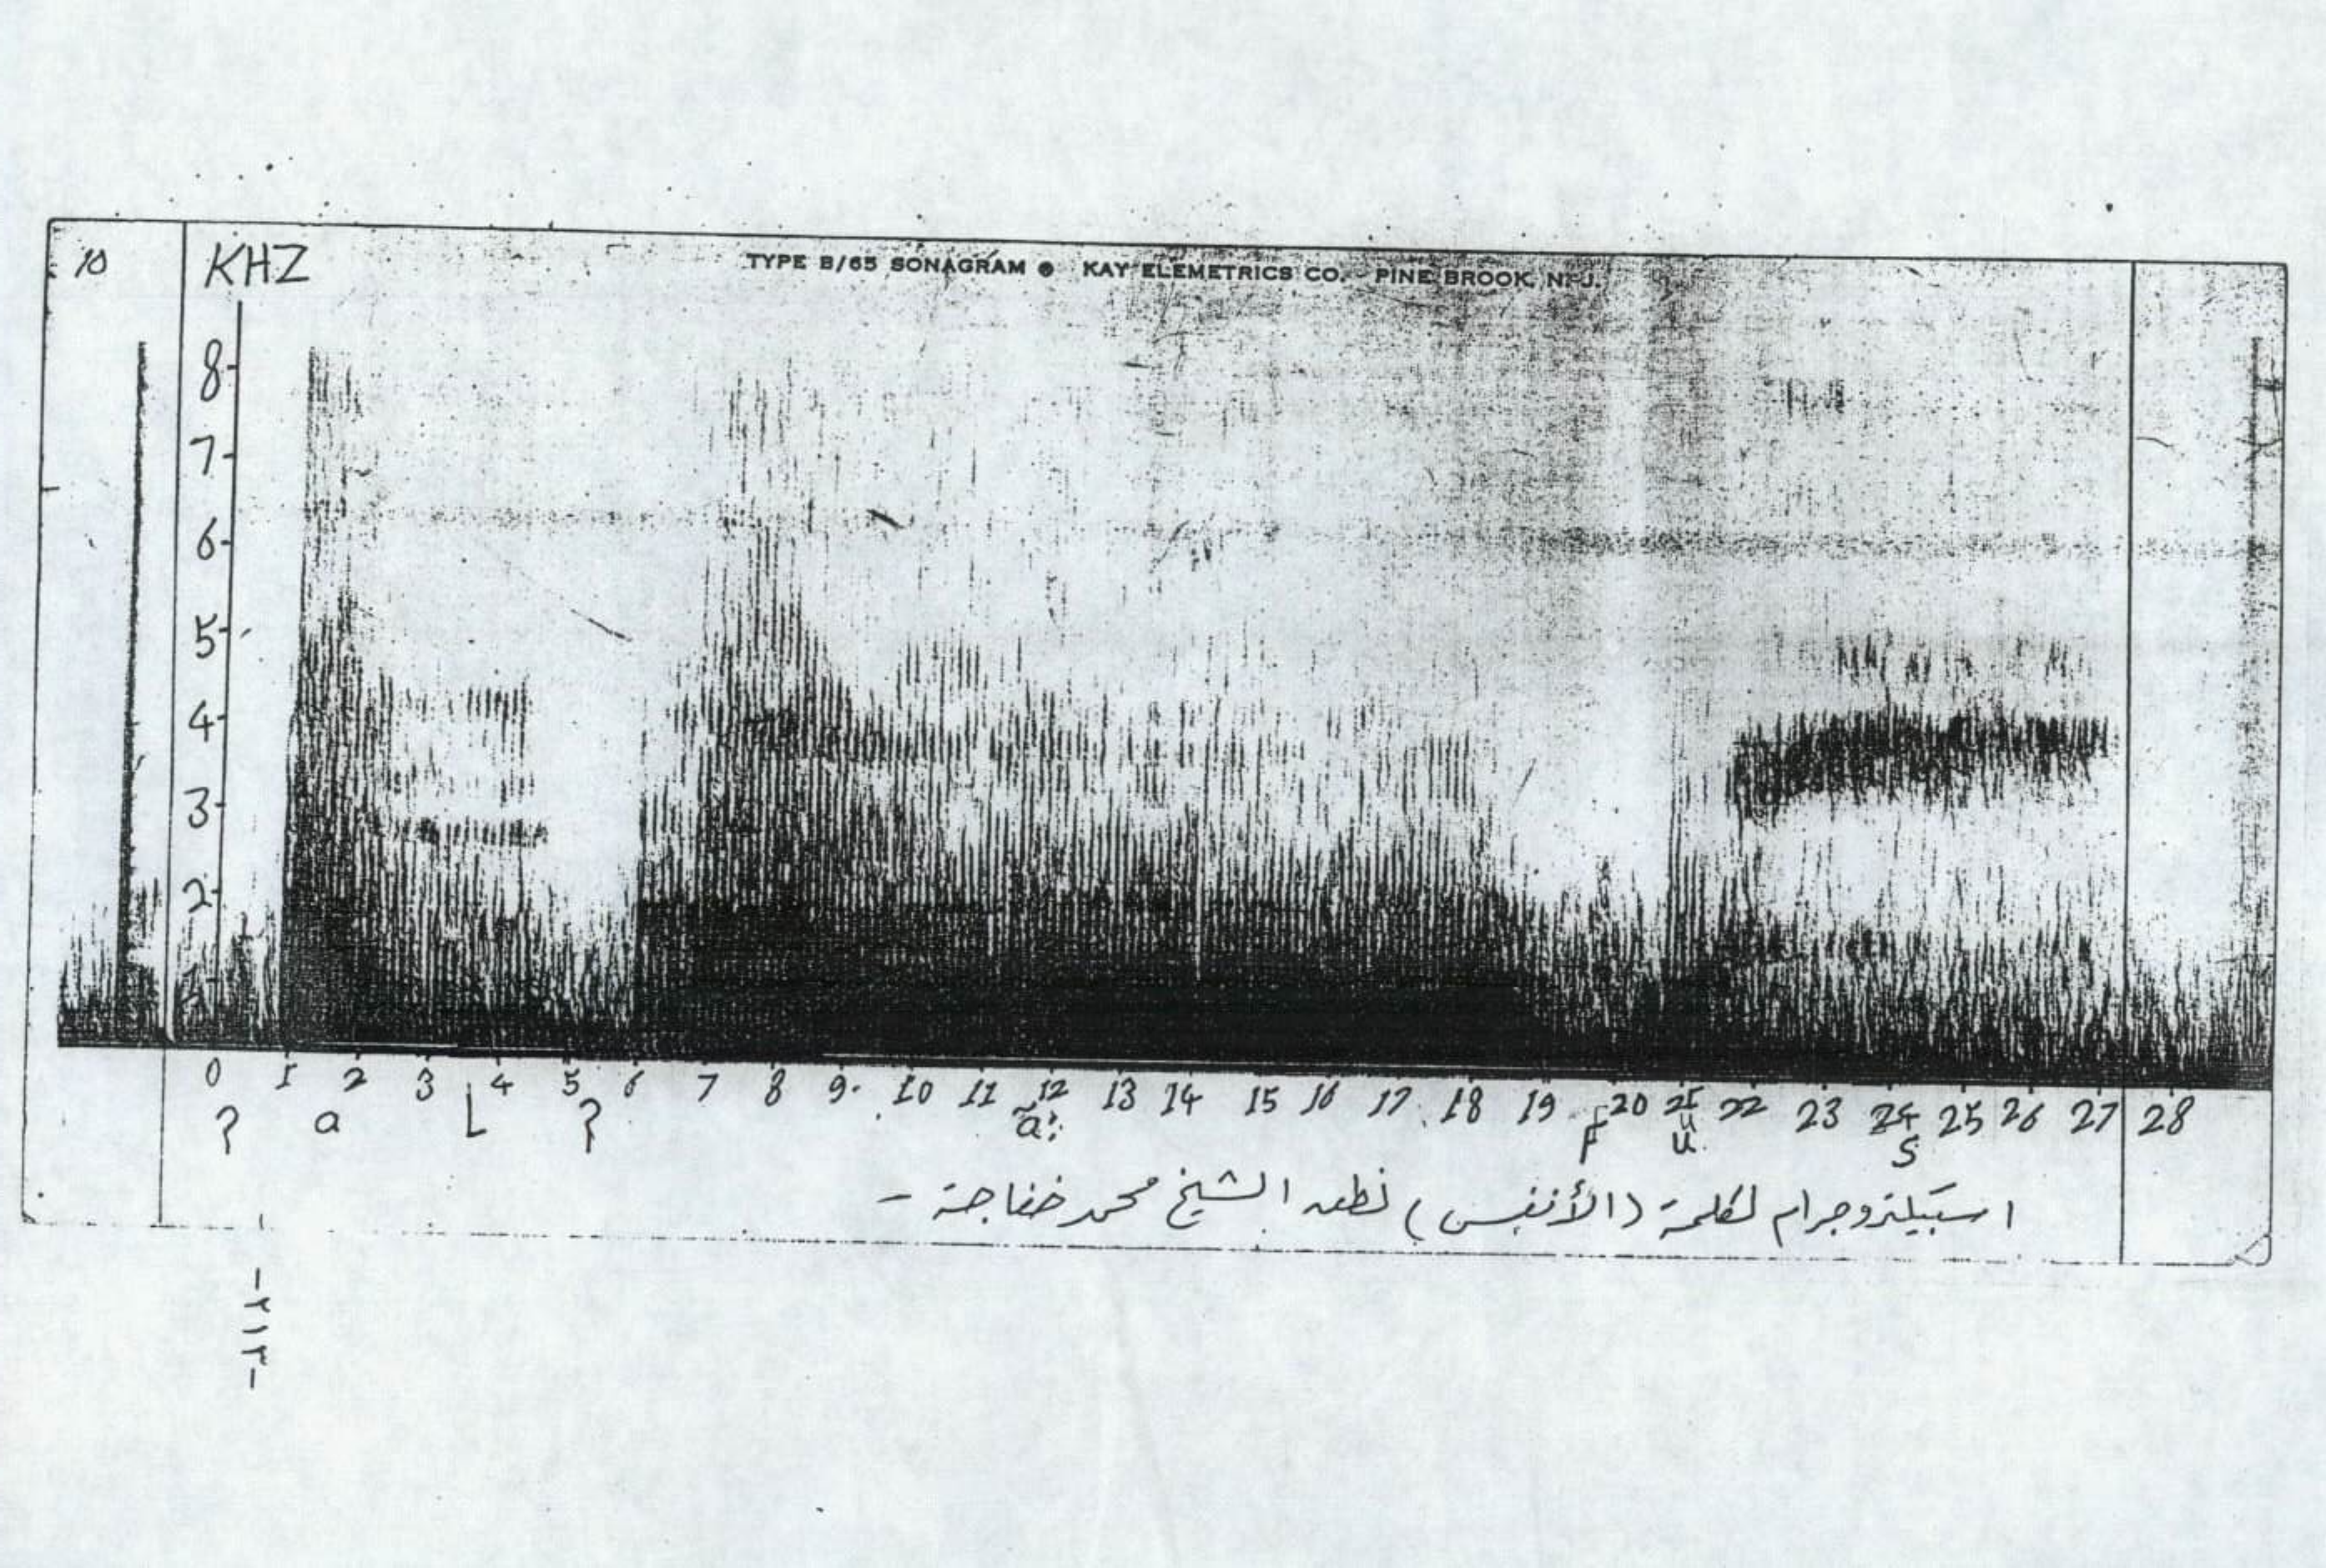 10
KHZ
TYPE B/65 SONAGRAM ● KAY ELEMETRICS CO. PINE BROOK, N. J.
8
7
6
5
4
3
2
0 1 2 3 4 5 6 7 8 9 10 11 12 13 14 15 16 17 18 19 20 21 22 23 24 25 26 27 28
ʔ a L ʔ ã: F u s
اسبيكتروجرام لكلمة (الأنفس) نطق الشيخ محمد خفاجة -
- ٢١٣ -